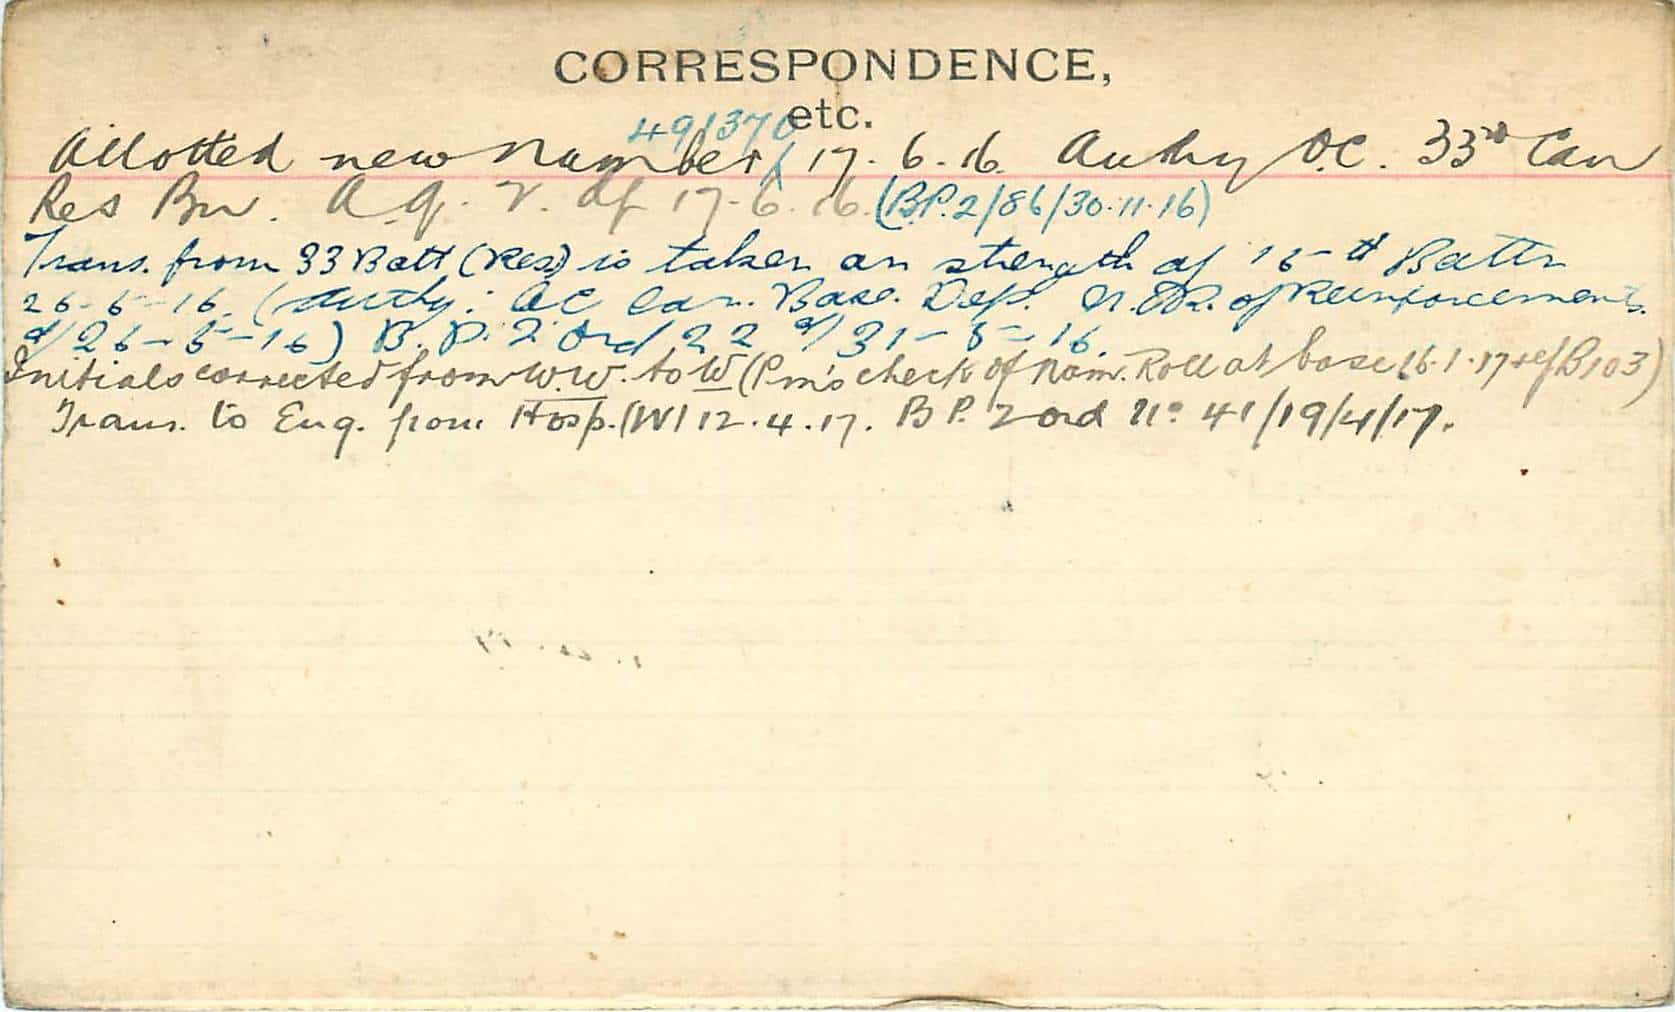 CORRESPONDENCE,
etc.
491370
Allotted new Number 17.6.16. Authy O.C. 33rd Can
Res Bn. A.G. V. Of 17.6.16. (B.P.2/86/30.11.16)
Trans. from 33 Batt (Res) is taken on strength of 15th Battn
26-5-16. (Authy: OC Can. Base. Dep. N.R. of Reinforcements.
d/26-5-16) B.P. 2 Ord 22 d/31-5-16.
Initials corrected from W.W. to W (Pm's check of Nom. Roll at base 16.1.17 ref B103)
Trans. to Eng. from Hosp. (W) 12.4.17. B P. 2 ord No 41/19/4/17.